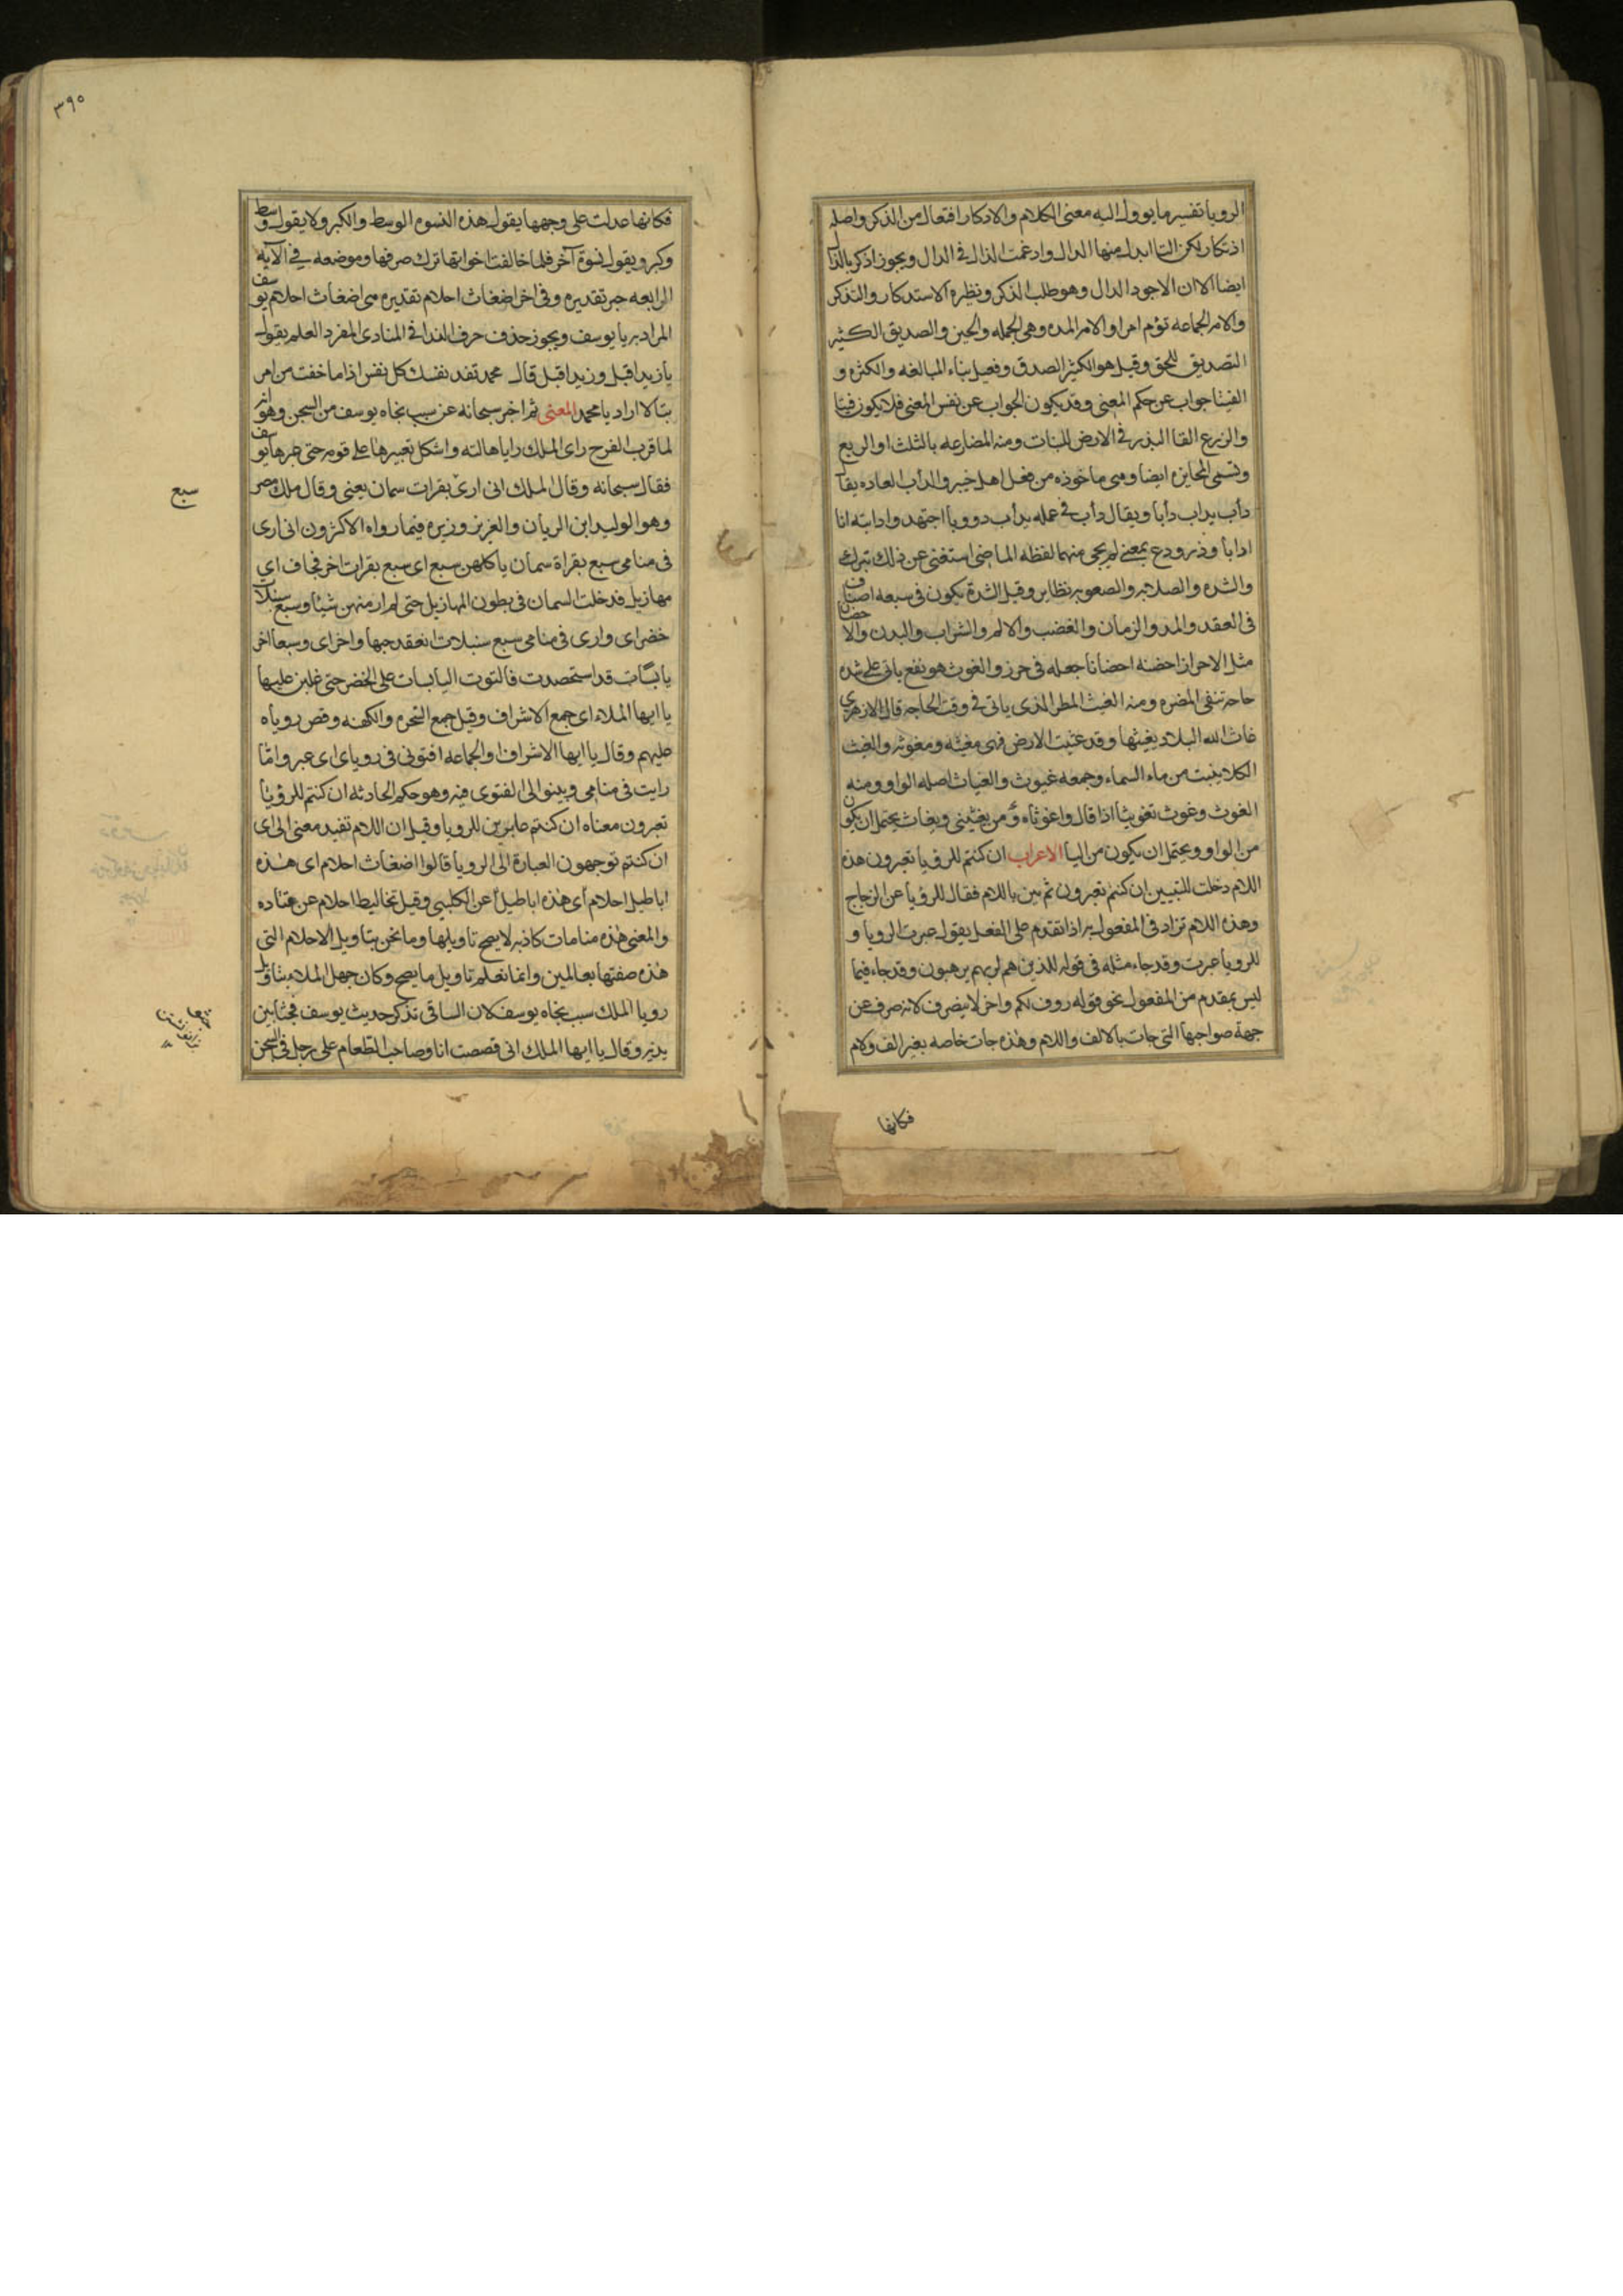 الرویا تفسیر ما یوول الیه معنی الکلام والادکار افتعال من الذکر واصله
اذتکار لکن التا ابدل منها الدال وادغمت الذال فی الدال ویجوز اذکر بالذال
ایضا الا ان الاجود الدال وهو طلب الذکر ونظیره الاستدکار والتذکر
والامه الجماعه تؤم امرا والامه المده وهی الجمله والحین والصدیق الکثیر
التصدیق للحق وقیل هو الکثیر الصدق وفعیل بناء المبالغه والکثره و
الفتیا جواب عن حکم المعنی وقد یکون الجواب عن نفس المعنی فلا یکون فتیا
والزرع القا البذر فی الارض للنبات ومنه المضارعه بالثلث او الربع
وتسمی المخابره ایضا وهی ماخوذه من فعل اهل خیبر والدأب العاده یقال
دأب یداب دأبا ویقال دأب فی عمله یدأب دووبا اجتهد وادابته انا
ادابا وذر ودع بمعنی لم یجی منهما لفظه الماضی استغنی عن ذلک بترک
والشده والصلابه والصعوبه نظایر وقیل الشدة یکون فی سبعه اصناف
فی العقد والمد والزمان والغضب والالم والشراب والبدن والاحضان
مثل الاحراز احضنه احضانا جعله فی حرز والغوث هو نفع یاتی علی شده
حاجة تنفی المضره ومنه الغیث المطر الذی یاتی فی وقت الحاجه قال الازهری
غاث الله البلاد یغیثها وقد غیثت الارض فهی مغیثه ومغیوثه والغیث
الکلا ینبت من ماء السماء وجمعه غیوث والغیاث اصله الواو ومنه
الغوث وغوث تغویثا اذا قال واغوثاه ومن یغیثنی ویغاث یحتمل ان یکون
من الواو ویحتمل ان یکون من الیا الاعراب ان کنتم للرؤیا تعبرون هذه
اللام دخلت للتبیین ان کنتم تعبرون ثم بین باللام فقال للرؤیا عن الزجاج
وهذه اللام تزاد فی المفعول به اذا تقدم علی الفعل یقول عبرت الرویا و
للرویا عبرت وقد جاء مثله فی قوله للذین هم لربهم یرهبون وقد جاء فیما
لیس بمقدم من المفعول نحو قوله ردف لکم واخر لا ینصرف لانه صرف عن
جهة صواحبها التی جات بالالف واللام وهذه جات خاصه بغیر الف ولام
فکانها
۳۹۰
فکانها عدلت علی وجهها یقول هذه النسوه الوسط والکبر ولا یقول وسط
وکبر ویقول نسوة آخر فلما خالفت اخواتها ترک صرفها وموضعه فی الآیه
الرابعه جر تقدیره وفی اخر اضغاث احلام تقدیره هی اضغاث احلام یوسف
المراد به یا یوسف ویجوز حذف حرف الندا فی المنادی المفرد العلم یقول
یا زید اقبل وزید اقبل قال محمد تفد نفسک کل نفس اذا ما خفت من امر
تبالا اراد یا محمد المعنی ثم اخبر سبحانه عن سبب نجاه یوسف من السجن وهو انه
لما قرب الفرج رای الملک رایا هالته واشکل تعبیرها علی قومه حتی عبرها یوسف
فقال سبحانه وقال الملک انی اری بقرات سمان یعنی وقال ملک مصر
سبع
وهو الولید ابن الریان والعزیز وزیره فیما رواه الاکثرون انی اری
فی منامی سبع بقراة سمان یاکلهن سبع ای سبع بقرات اخر عجاف ای
مهازیل فدخلت السمان فی بطون المهازیل حتی لم ار منهن شیئا وسبع سنبلات
خضر ای واری فی منامی سبع سنبلات انعقد حبها واخر ای وسبعا اخر
یابسات قد استحصدت فالتوت الیابسات علی الخضر حتی غلبن علیها
یا ایها الملاء ای جمع الاشراف وقیل جمع السحره والکهنه وقص رویاه
علیهم وقال یا ایها الاشراف او الجماعه افتونی فی رویای ای عبروا ما
رایت فی منامی وبینوا لی الفتوی فیه وهو حکم الحادثه ان کنتم للرؤیا
تعبرون معناه ان کنتم عابرین للرویا وقیل ان اللام تفید معنی الی ای
ان کنتم توجهون العبارة الی الرویا قالوا اضغاث احلام ای هذه
اباطیل احلام أی هذه اباطیل عن الکلبی وقیل تخالیط احلام عن قتاده
والمعنی هذه منامات کاذبه لا یصح تاویلها وما نحن بتاویل الاحلام التی
هذه صفتها بعالمین وانما نعلم تاویل ما یصح وکان جهل الملاء بتاویل
رویا الملک سبب نجاه یوسف لان الساقی تذکر حدیث یوسف فجثا بین
یدیه وقال یا ایها الملک انی قصصت انا وصاحب الطعام علی رجل فی السجن